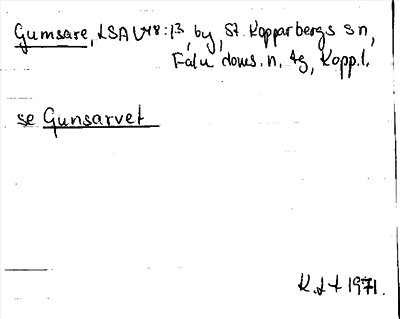 Gumsare, LSA V48:13, by, St. Kopparbergs sn,
Falu doms. n. tg, Kopp.l.
se Gunsarvet
1971.